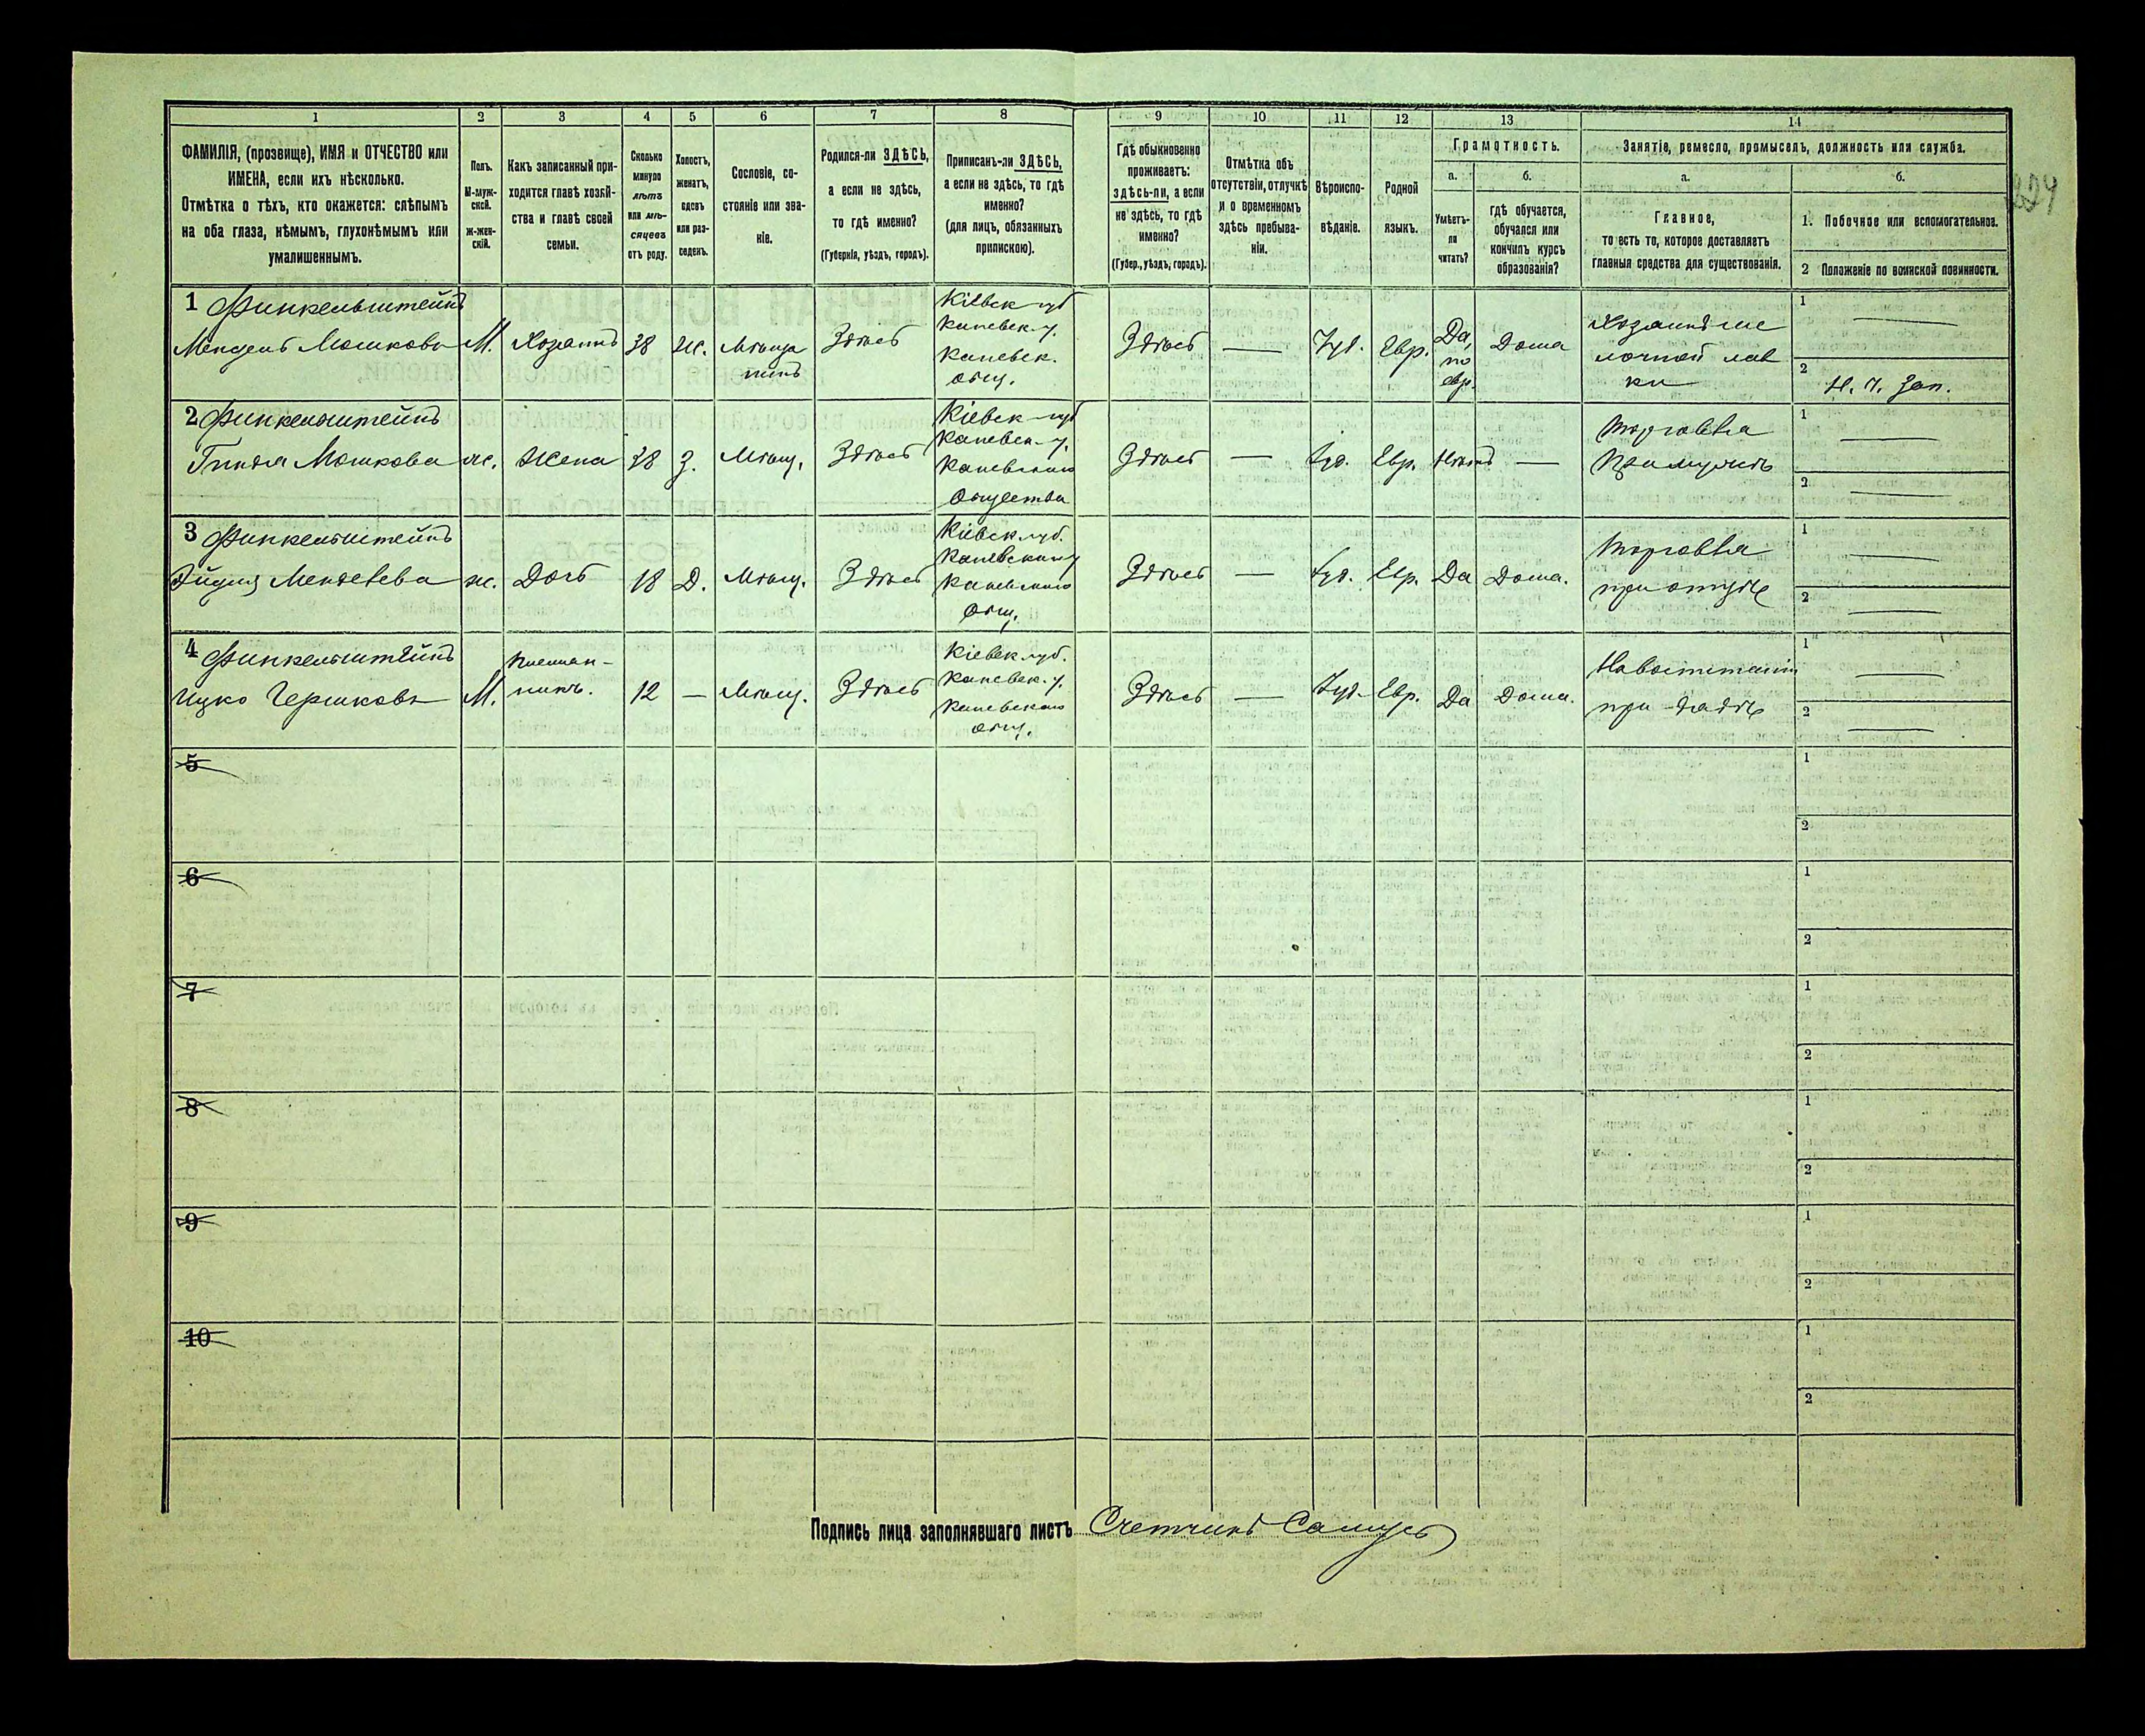 1 2 3 4 5 6 7 8 9 10 11 12 13 14
ФАМИЛІЯ, (прозвище), ИМЯ и ОТЧЕСТВО или
ИМЕНА, если ихъ нѣсколько.
Отмѣтка о тѣхъ, кто окажется: слѣпымъ
на оба глаза, нѣмымъ, глухонѣмымъ или
умалишеннымъ.
Полъ.
М-муж-
ской.
ж-жен-
скій.
Какъ записанный при-
ходится главѣ хозяй-
ства и главѣ своей
семьи.
Сколько
минуло
лѣтъ
или мѣ-
сяцевъ
отъ роду.
Холостъ,
женатъ,
вдовъ
или раз-
веденъ.
Сословіе, со-
стояніе или зва-
ніе.
Родился-ли ЗДѢСЬ,
а если не здѣсь,
то гдѣ именно?
(Губернія, уѣздъ, городъ).
Приписанъ-ли ЗДѢСЬ,
а если не здѣсь, то гдѣ
именно?
(для лицъ, обязанныхъ
припискою).
Гдѣ обыкновенно
проживаетъ:
здѣсь-ли, а если
не здѣсь, то гдѣ
именно?
(Губер., уѣздъ, городъ).
Отмѣтка объ
отсутствіи, отлучкѣ
и о временномъ
здѣсь пребыва-
ніи.
Вѣроиспо-
вѣданіе.
Родной
языкъ.
Грамотность.
а.
Умѣетъ-
ли
читать?
б.
гдѣ обучается,
обучался или
кончилъ курсъ
образованія?
Занятіе, ремесло, промыселъ, должность или служба.
а.
Главное,
то есть то, которое доставляетъ
главныя средства для существованія.
б.
1. Побочное или вспомогательное.
2 Положеніе по воинской повинности.
224
1 Финкельштейнъ
Мендель Мошковъ
М.
Хозяинъ
38
Ж.
Мѣща
нинъ
Здѣсь
Кіевск губ
Каневск. у.
Каневск.
общ.
Здѣсь
—
Іуд.
Евр.
Да,
по
евр.
Дома
Хозяинъ ме
лочной лав
ки
1 —
2 Н. ч. Зап.
2 Финкельштейнъ
Мошкова
ж.
Жена
38
З.
Мѣщ.
Здѣсь
Кіевск губ
Каневск. у.
Каневского
Общества
Здѣсь
—
Іуд.
Евр.
Нѣтъ
—
Торговля
При мужѣ
1 —
2 —
3 Финкельштейнъ
Менделева
ж.
Дочь
18
Д.
Мѣщ.
Здѣсь
Кіевск губ.
Каневскаго у
Каневского
Общ.
Здѣсь
—
Іуд.
Евр.
Да
Дома.
Торговля
при отцѣ
1 —
2 —
4 Финкельштейнъ
Ицко Гершковъ
М.
Племян-
никъ.
12
—
Мѣщ.
Здѣсь
Кіевск губ.
Каневск. у.
Каневского
общ.
Здѣсь
—
Іуд.
Евр.
Да
Дома.
На воспитаніи
при дядѣ
1 —
2 —
5
1
2
6
1
2
7
1
2
8
1
2
9
1
2
10
1
2
Подпись лица заполнявшаго листъ Счетчикъ